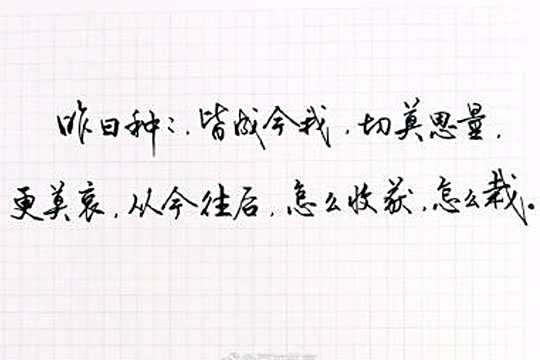 昨日种:，皆成今我，切莫思量，
更莫哀，从今往后，怎么收获，怎么栽。